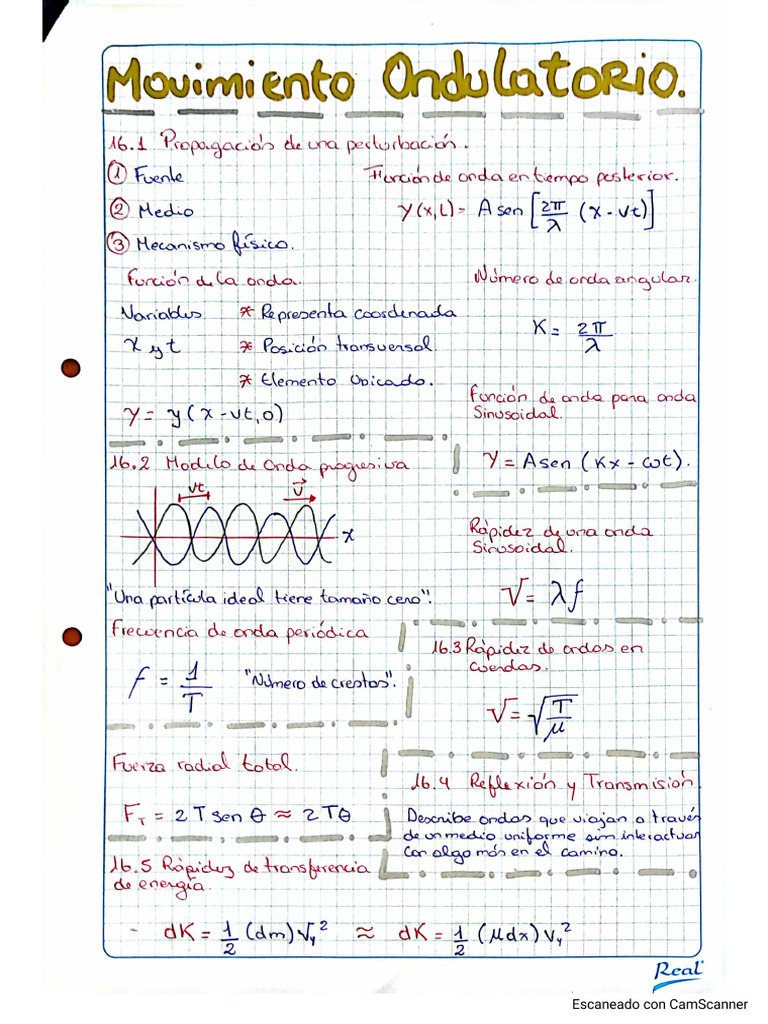 Movimiento Ondulatorio.
16.1 Propagación de una perturbación.
① Fuente
② Medio
③ Mecanismo físico.
Función de onda en tiempo posterior.
y(x,t) = A sen [2π/λ (x - vt)]
Función de la onda.
Variables
x y t
* Representa coordenada
* Posición transversal.
* Elemento Ubicado.
y = y(x - vt, 0)
Número de onda angular.
K = 2π/λ
Función de onda para onda
Sinusoidal.
y = A sen (Kx - ωt).
16.2 Modelo de Onda progresiva
vt
v⃗
x
"Una partícula ideal tiene tamaño cero".
Rápidez de una onda
Sinusoidal.
V = λf
Frecuencia de onda periódica
f = 1/T "Número de crestas".
16.3 Rápidez de ondas en
cuerdas.
V = √(T/μ)
Fuerza radial total.
F_T = 2 T sen θ ≈ 2 Tθ
16.4 Reflexión y Transmisión
Describe ondas que viajan a través
de un medio uniforme sin interactuar
con algo más en el camino.
16.5 Rápidez de transferencia
de energía.
- dK = 1/2 (dm) v_y² ≈ dK = 1/2 (μdx) v_y²
Real
Escaneado con CamScanner